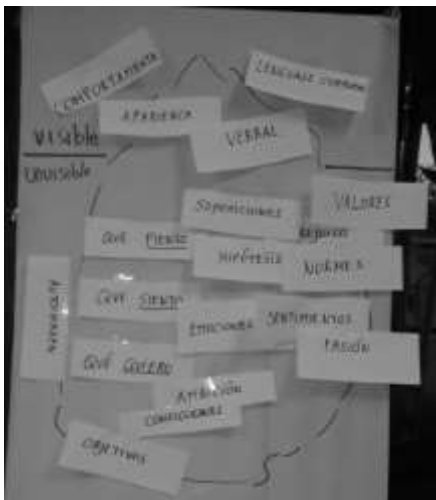 COMPORTAMIENTO
LENGUAJE CORPORAL
APARIENCIA
VERBAL
Visible
Unvisible
SUPOSICIONES
VALORES
QUÉ PIENSO
HIPÓTESIS
NORMES
QUE SIENTO
EMOCIONES
SENTIMIENTOS
QUÉ QUIERO
PASIÓN
AMBICIÓN
CONVICCIONES
OBJETIVOS